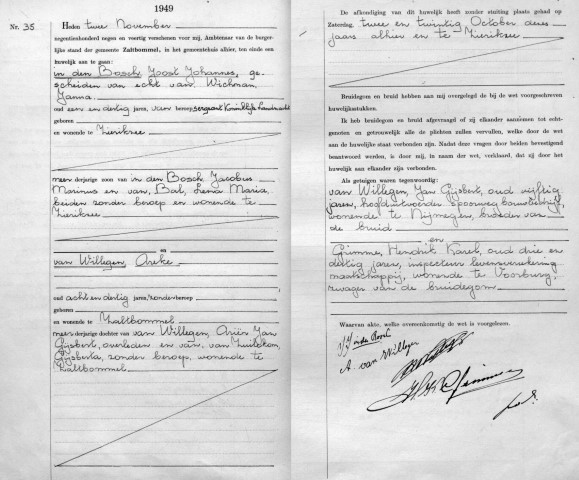 1949
Nr. 35
Heden twee November
negentienhonderd negen en veertig verschenen voor mij, Ambtenaar van de burger-
lijke stand der gemeente Zaltbommel, in het gemeentehuis alhier, ten einde een
huwelijk aan te gaan:
in den Bosch, Joost Johannes, ge-
scheiden van echt van Wichman,
Janna
oud een en dertig jaren, van beroep sergeant Koninklijke Landmacht
geboren
en wonende te Zierikzee
meerderjarige zoon van in den Bosch, Jacobus
Marinus en van, Bal, Lena Maria
beiden zonder beroep en wonende te
Zierikzee
en
van Willegen, Areke
oud acht en dertig jaren, zonder beroep
geboren
en wonende te Zaltbommel
meerderjarige dochter van van Willegen, Ariër Jan
Gijsbert, overleden en van, van
Gijsberta, zonder beroep, wonende te
Zaltbommel
De afkondiging van dit huwelijk heeft zonder stuiting plaats gehad op
Zaterdag, twee en twintig October dezes
jaars alhier en te Zierikzee
Bruidegom en bruid hebben aan mij overgelegd de bij de wet voorgeschreven
huwelijksstukken.
Ik heb bruidegom en bruid afgevraagd of zij elkander aannemen tot echt-
genoten en getrouwelijk alle de plichten zullen vervullen, welke door de wet
aan de huwelijke staat verbonden zijn. Nadat deze vragen door beiden bevestigend
beantwoord werden, is door mij, in naam der wet, verklaard, dat zij door het
huwelijk aan elkander zijn verbonden.
Als getuigen waren tegenwoordig:
van Willegen, Jan Gijsbert, oud vijftig
jaren, hoofduitvoerder spoorwegbouwbedrijf,
wonende te Nijmegen, broeder van
de bruid
en
Grimme, Hendrik Karel, oud drie en
dertig jaren, inspecteur levensverzekering
maatschappij, wonende te Voorburg,
zwager van de bruidegom
Waarvan akte, welke overeenkomstig de wet is voorgelezen.
A. van Willegen